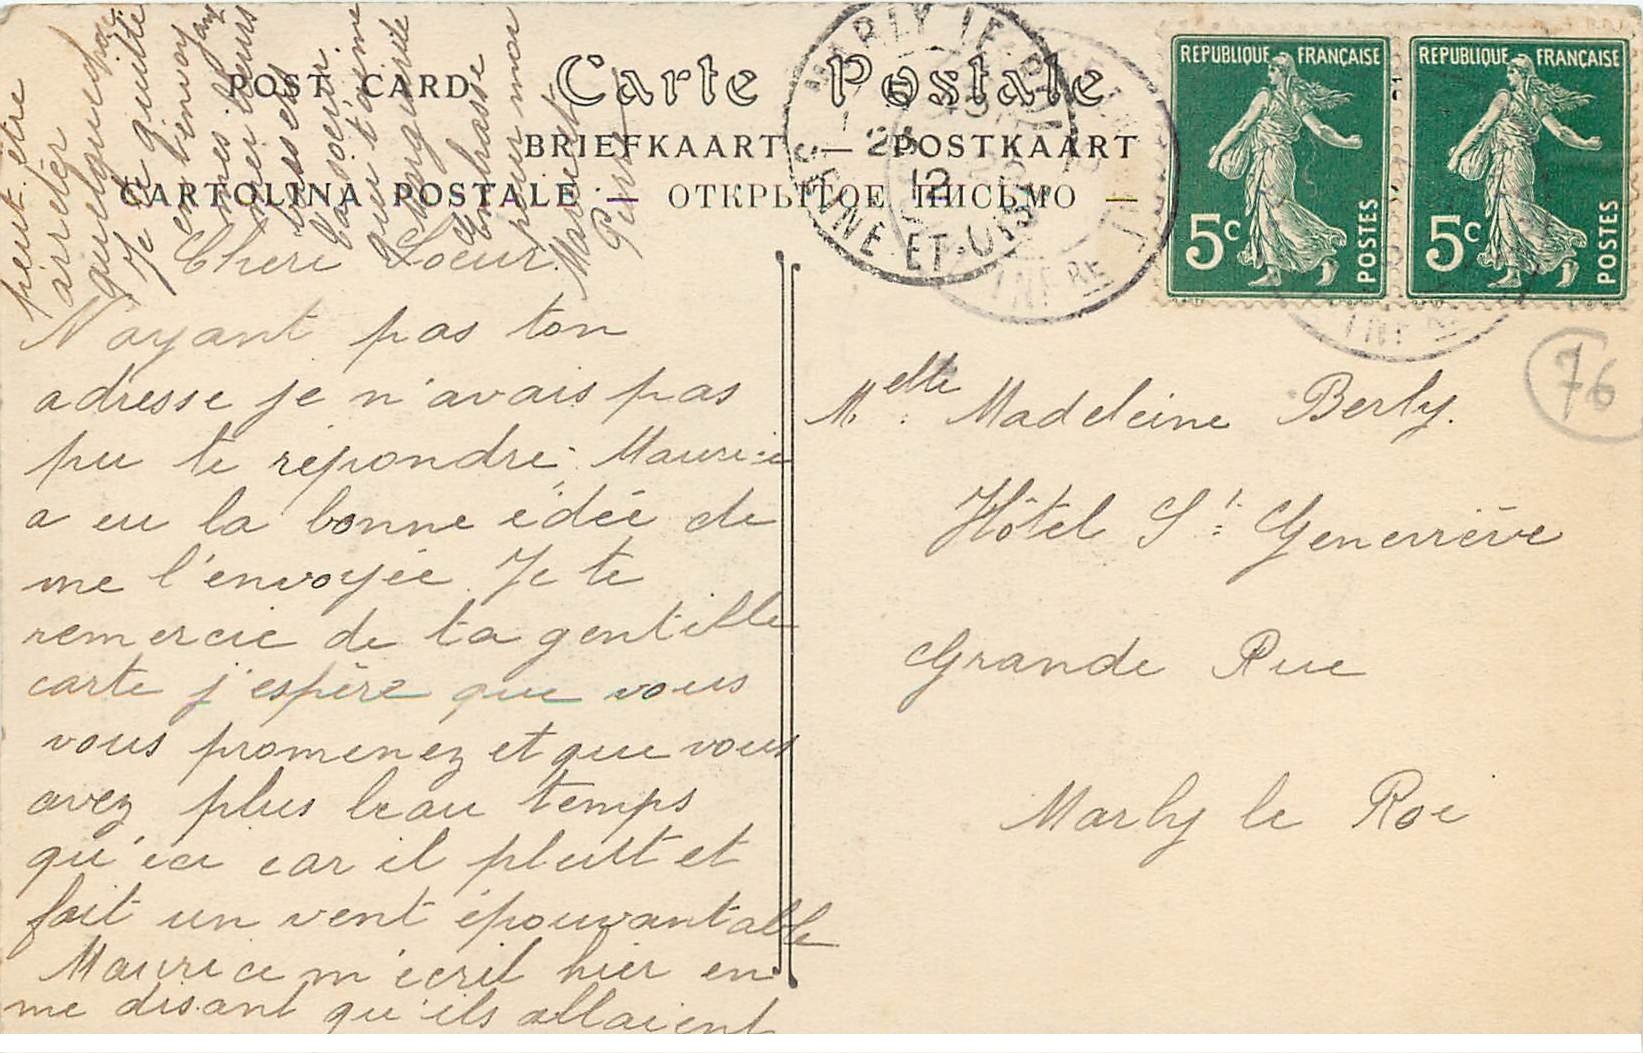 POST CARD Carte Postale
BRIEFKAART — POSTKAART
CARTOLINA POSTALE — ОТКРЫТОЕ ПИСЬМО —
MARLY-LE-ROI
12
SEINE-ET-OISE
INFRE
REPUBLIQUE FRANÇAISE
5c POSTES
REPUBLIQUE FRANÇAISE
5c POSTES
INFRE
76
Cheri Soeur.
N'ayant pas ton
adresse je n'avais pas
pu te répondre; Maurice
a eu la bonne idée de
me l'envoyée. Je te
remercie de ta gentille
carte j'espère que vous
vous promenez et que vous
avez plus beau temps
qu'ici car il pleut et
fait un vent épouvantable
Maurice m'écrit hier en
me disant qu'ils allaient
peut être
arrêter
quelque
Je te quitte
en t'envoyant
mes meilleurs
baisers
Ta soeur
qui t'aime
Marguerite
Embrasse
pour moi
Mlle Madeleine Berly.
Hôtel St Geneviève
Grande Rue
Marly le Roi